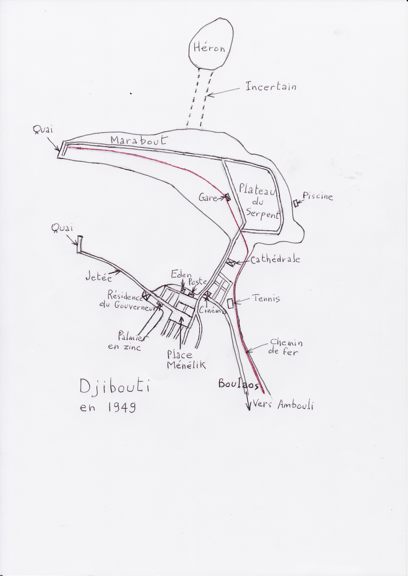 Héron
Incertain
Quai
Marabout
Plateau
du
Serpent
Piscine
Gare
Quai
Cathédrale
Jetée
Eden
Poste
Résidence
du Gouverneur
Cinéma
Tennis
Palmier
en zinc
Place
Ménélik
Chemin
de fer
Djibouti
en 1949
Boulaos
Vers Ambouli